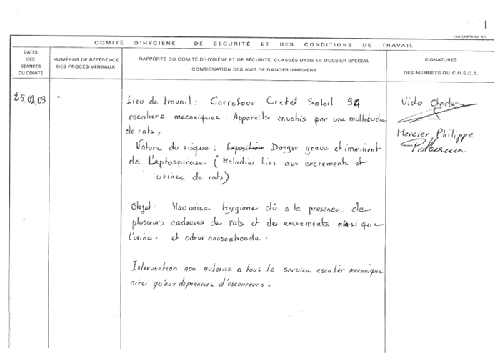 COMITÉ D'HYGIENE DE SÉCURITÉ ET DES CONDITIONS DE TRAVAIL
DATES DES SÉANCES DU COMITÉ
NUMÉROS DE RÉFÉRENCE DES PROCÈS-VERBAUX
RAPPORTS DU COMITÉ D'HYGIÈNE ET DE SÉCURITÉ, CLASSÉS DANS LE DOSSIER SPÉCIAL
CONSIGNATION DES AVIS DE DANGER IMMINENT
SIGNATURES
DES MEMBRES DU C.H.S.C.T.
25.02.09
-
Lieu de travail : Carrefour Creteil Soleil 94
escaliers mecaniques. Appareils envahis par une multitude
de rats.
Nature du risque : Danger grave et imminent
de Leptospirose (Maladies liés aux excrements et
urines de rats)
Objet : Mauvaise hygiene dû a la presence de
plusieurs cadavres de rats et des excrements ainsi que
l'urine. et odeur nauseabonde.
Intervention non autorisé a tous le service escalier mecanique
ainsi qu'aux depanneurs d'ascenseurs.
Mercier Philippe